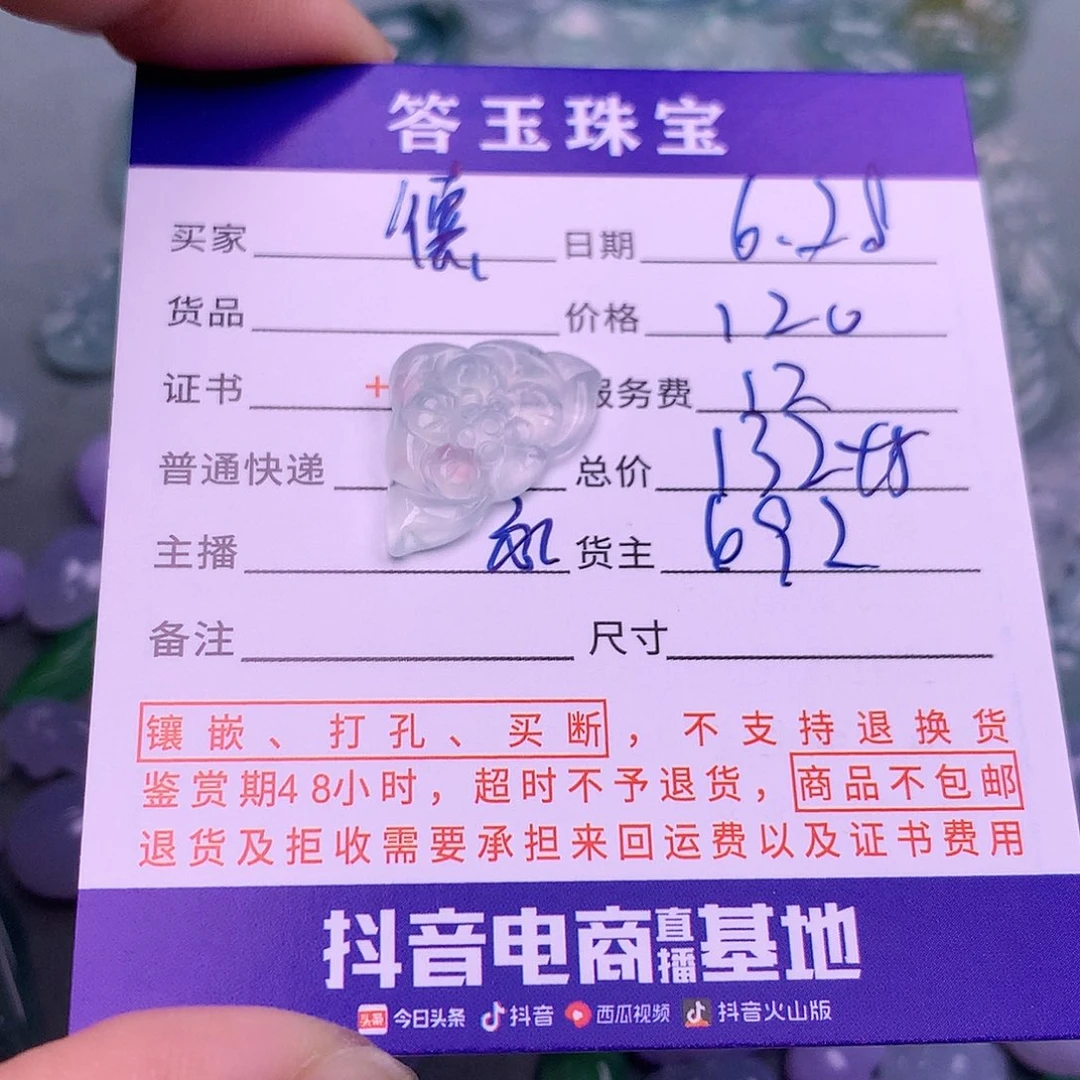 答玉珠宝
买家 德 日期 6.28
货品 价格 120
证书 + 服务费 12
普通快递 总价 132
主播 货主 692
备注 尺寸
镶嵌、打孔、买断，不支持退换货
鉴赏期48小时，超时不予退货，商品不包邮
退货及拒收需要承担来回运费以及证书费用
抖音电商直播基地
头条 今日头条 抖音 西瓜视频 抖音火山版